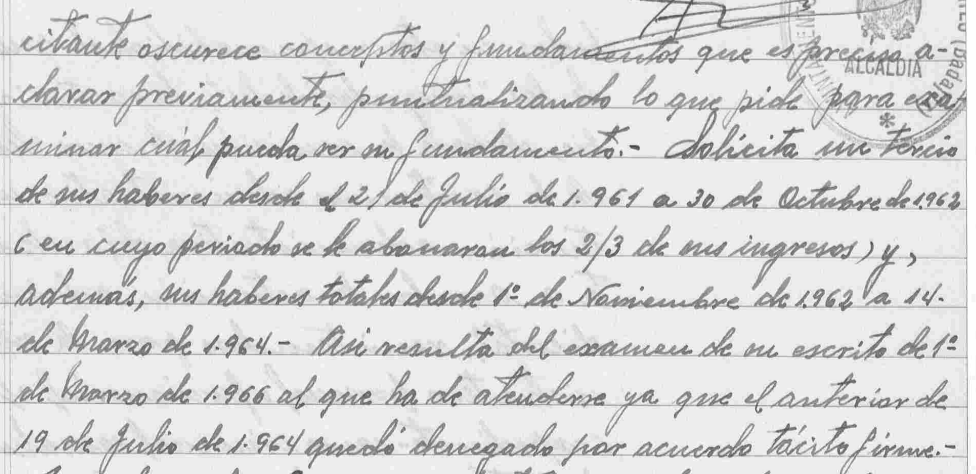 citante oscurece conceptos y fundamentos que es preciso a-
clarar previamente, puntualizando lo que pide para exa-
minar cuál pueda ser su fundamento.- Solicita un tercio
de sus haberes desde el 21 de Julio de 1.961 a 30 de Octubre de 1.962
(en cuyo periodo se le abonaron los 2/3 de sus ingresos) y,
además, sus haberes totales desde 1º de Noviembre de 1.962 a 14.
de Marzo de 1.964.- Asi resulta del examen de su escrito de 1º
de Marzo de 1.966 al que ha de atenderse ya que el anterior de
19 de Julio de 1.964 quedó denegado por acuerdo tácito firme.-
ALCALDIA